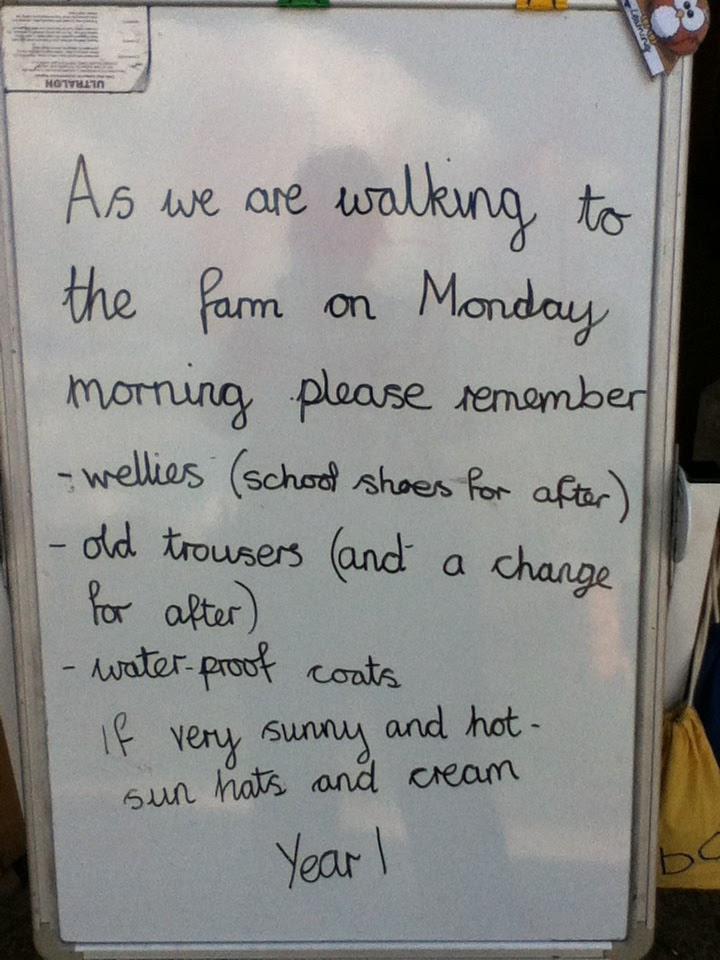 ULTRALON
As we are walking to
the farm on Monday
morning please remember
- wellies (school shoes for after)
- old trousers (and a change
for after)
- water-proof coats
If very sunny and hot -
sun hats and cream
Year 1